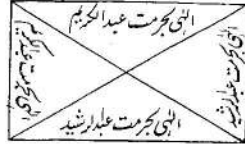 الٰہی بحرمت عبدالکریم
الٰہی بحرمت عبدالرشید
الٰہی بحرمت عبدالرشید
الٰہی بحرمت عبدالکریم